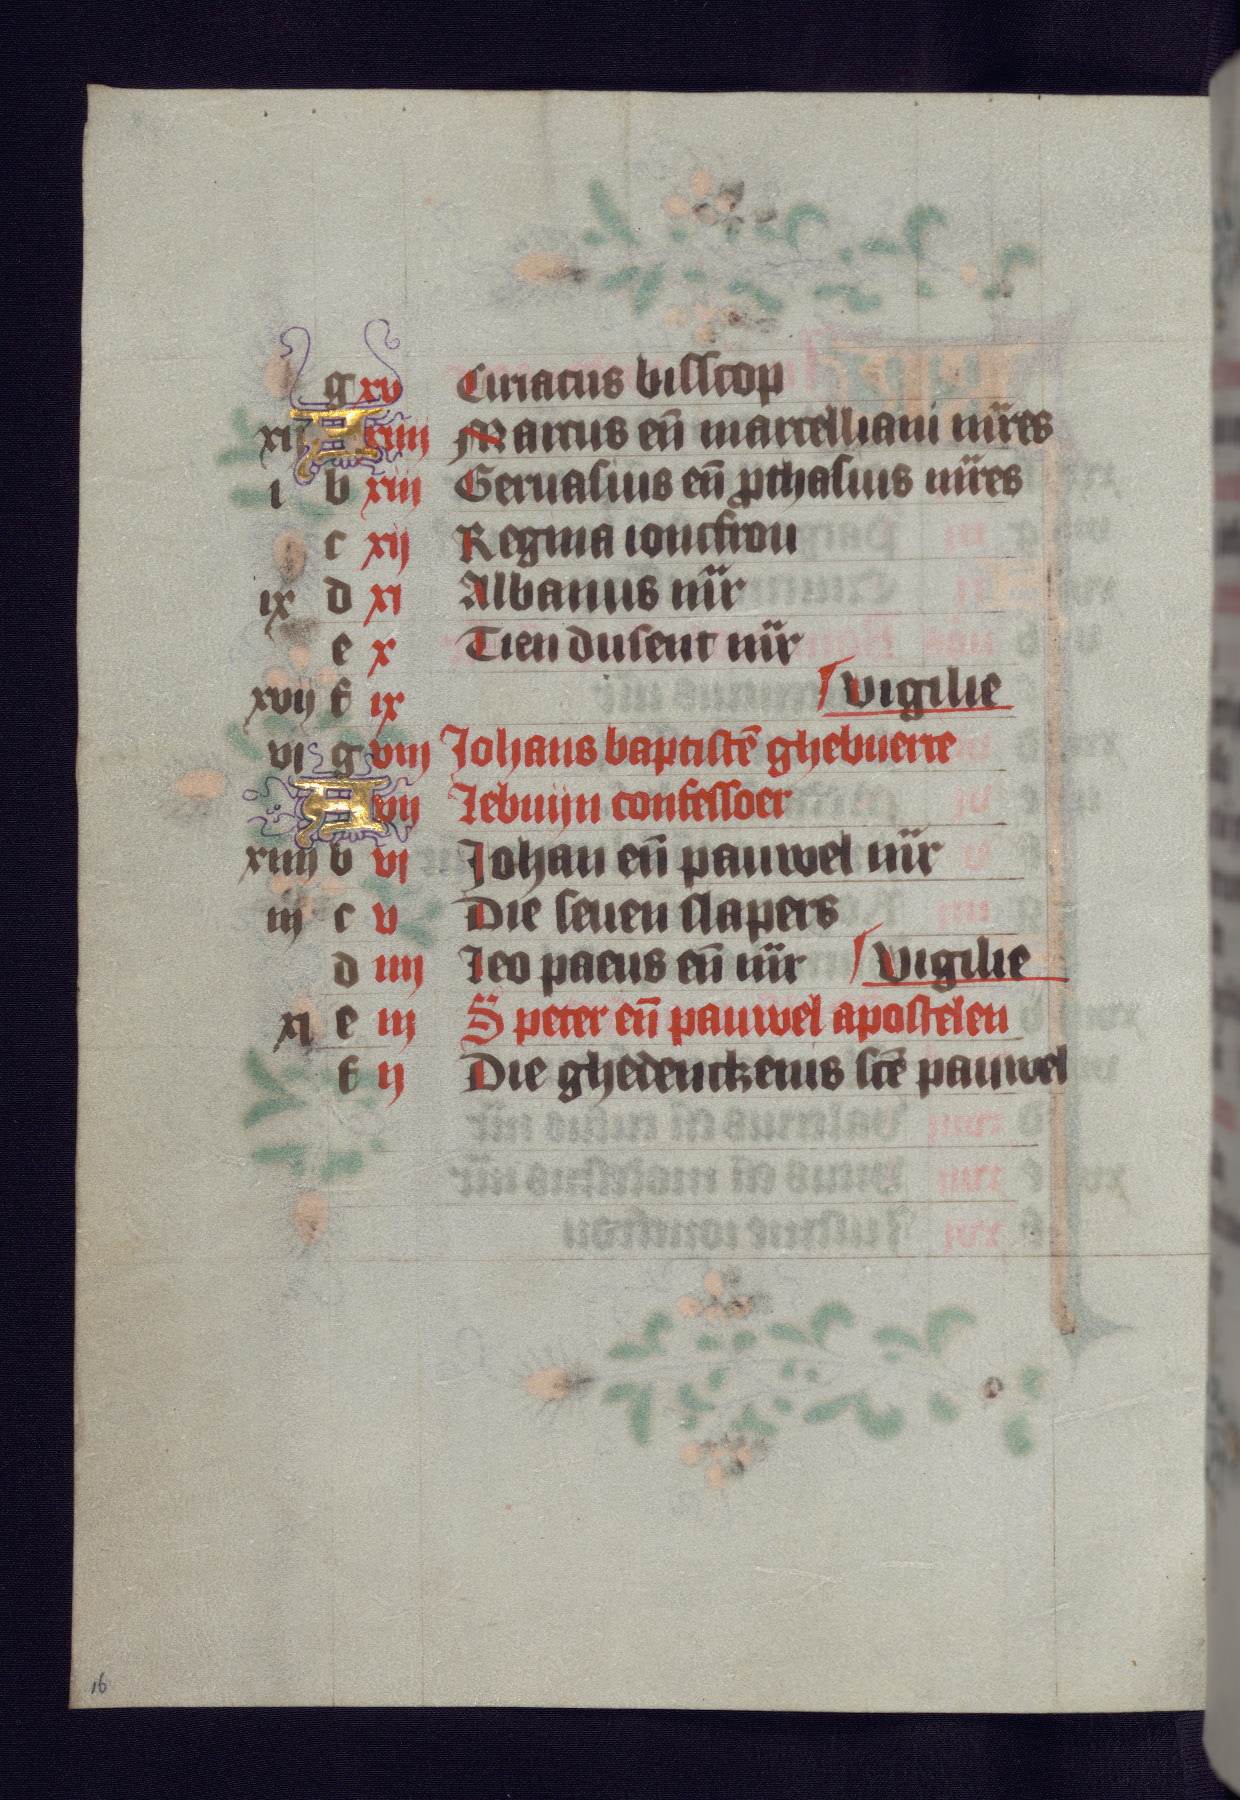 g xv Ciriacus bisscop
xii A xiiii Marcus en̄ marcelliani mr̄res
i b xiii Geruasius en̄ ꝓthasius mr̄res
c xij Regina ioncfrou
ix d xi Albanus mr̄r
e x Tien dusent mr̄r
xvij f ix Vigilie
vi g viii Johans baptistē ghebuerte
A vij Lebuijn confessoer
xiiii b vi Johan en̄ pauwel mr̄r
iij c v Die seuen slapers
d iiij Leo paeus en̄ mr̄r Vigilie
xi e iij S peter en̄ pauwel apostelen
f ij Die ghedenckenis sc̄te pauwel
16